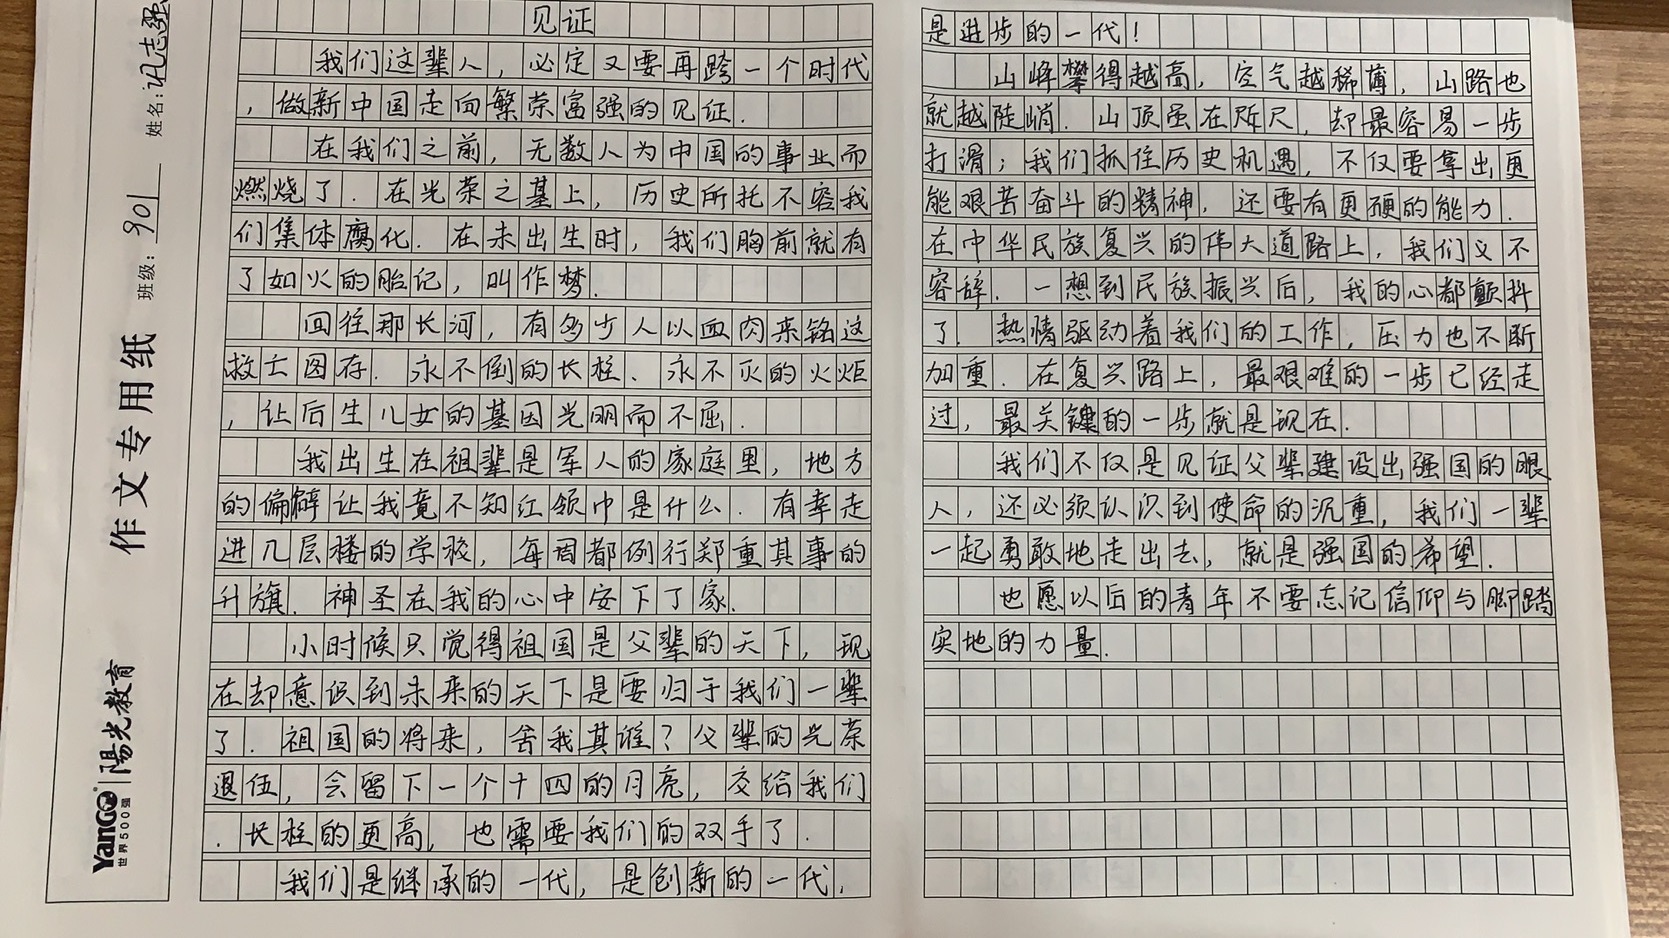 见证
我们这辈人，必定又要再跨一个时代
，做新中国走向繁荣富强的见证.
在我们之前，无数人为中国的事业而
燃烧了.在光荣之基上，历史所托不容我
们集体腐化.在未出生时，我们胸前就有
了如火的胎记，叫作梦.
回往那长河，有多少人以血肉来铭这
救亡图存.永不倒的长柱、永不灭的火炬
，让后生儿女的基因光明而不屈.
我出生在祖辈是军人的家庭里，地方
的偏僻让我竟不知红领巾是什么.有幸走
进几层楼的学校，每周都例行郑重其事的
升旗.神圣在我的心中安下了家.
小时候只觉得祖国是父辈的天下，现
在却意识到未来的天下是要归于我们一辈
了.祖国的将来，舍我其谁？父辈的光荣
退伍，会留下一个十四的月亮，交给我们
.长柱的更高，也需要我们的双手了.
我们是继承的一代，是创新的一代，
是进步的一代！
山峰攀得越高，空气越稀薄，山路也
就越陡峭.山顶虽在咫尺，却最容易一步
打滑；我们抓住历史机遇，不仅要拿出更
能艰苦奋斗的精神，还要有更硬的能力.
在中华民族复兴的伟大道路上，我们义不
容辞.一想到民族振兴后，我的心都颤抖
了.热情驱动着我们的工作，压力也不断
加重.在复兴路上，最艰难的一步已经走
过，最关键的一步就是现在.
我们不仅是见证父辈建设出强国的眼
人，还必须认识到使命的沉重，我们一辈
一起勇敢地走出去，就是强国的希望.
也愿以后的青年不要忘记信仰与脚踏
实地的力量.
姓名：志强
班级：901
作文专用纸
YanGo 陽光教育
世界500强